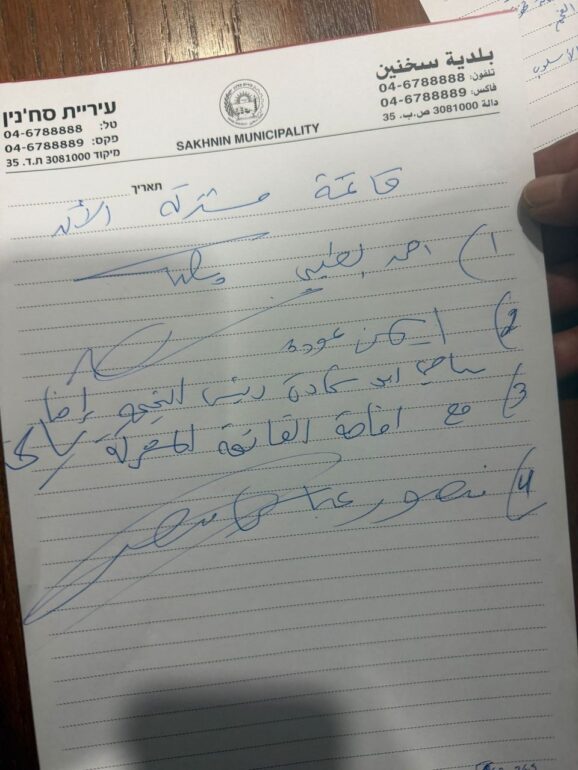 بلدية سخنين
تلفون: 04-6788888
فاكس: 04-6788889
دالة 3081000 ص.ب. 35
SAKHNIN MUNICIPALITY
עיריית סח'נין
טל: 04-6788888
פקס: 04-6788889
מיקוד 3081000 ת.ד. 35
תאריך
قائمة مشتركة الآن
1) احمد الطيبي
2) ايمن عودة
3) سامي ابو شحادة رئيس التجمع
مع اقامة القائمة المشتركة
4) منصور عباس